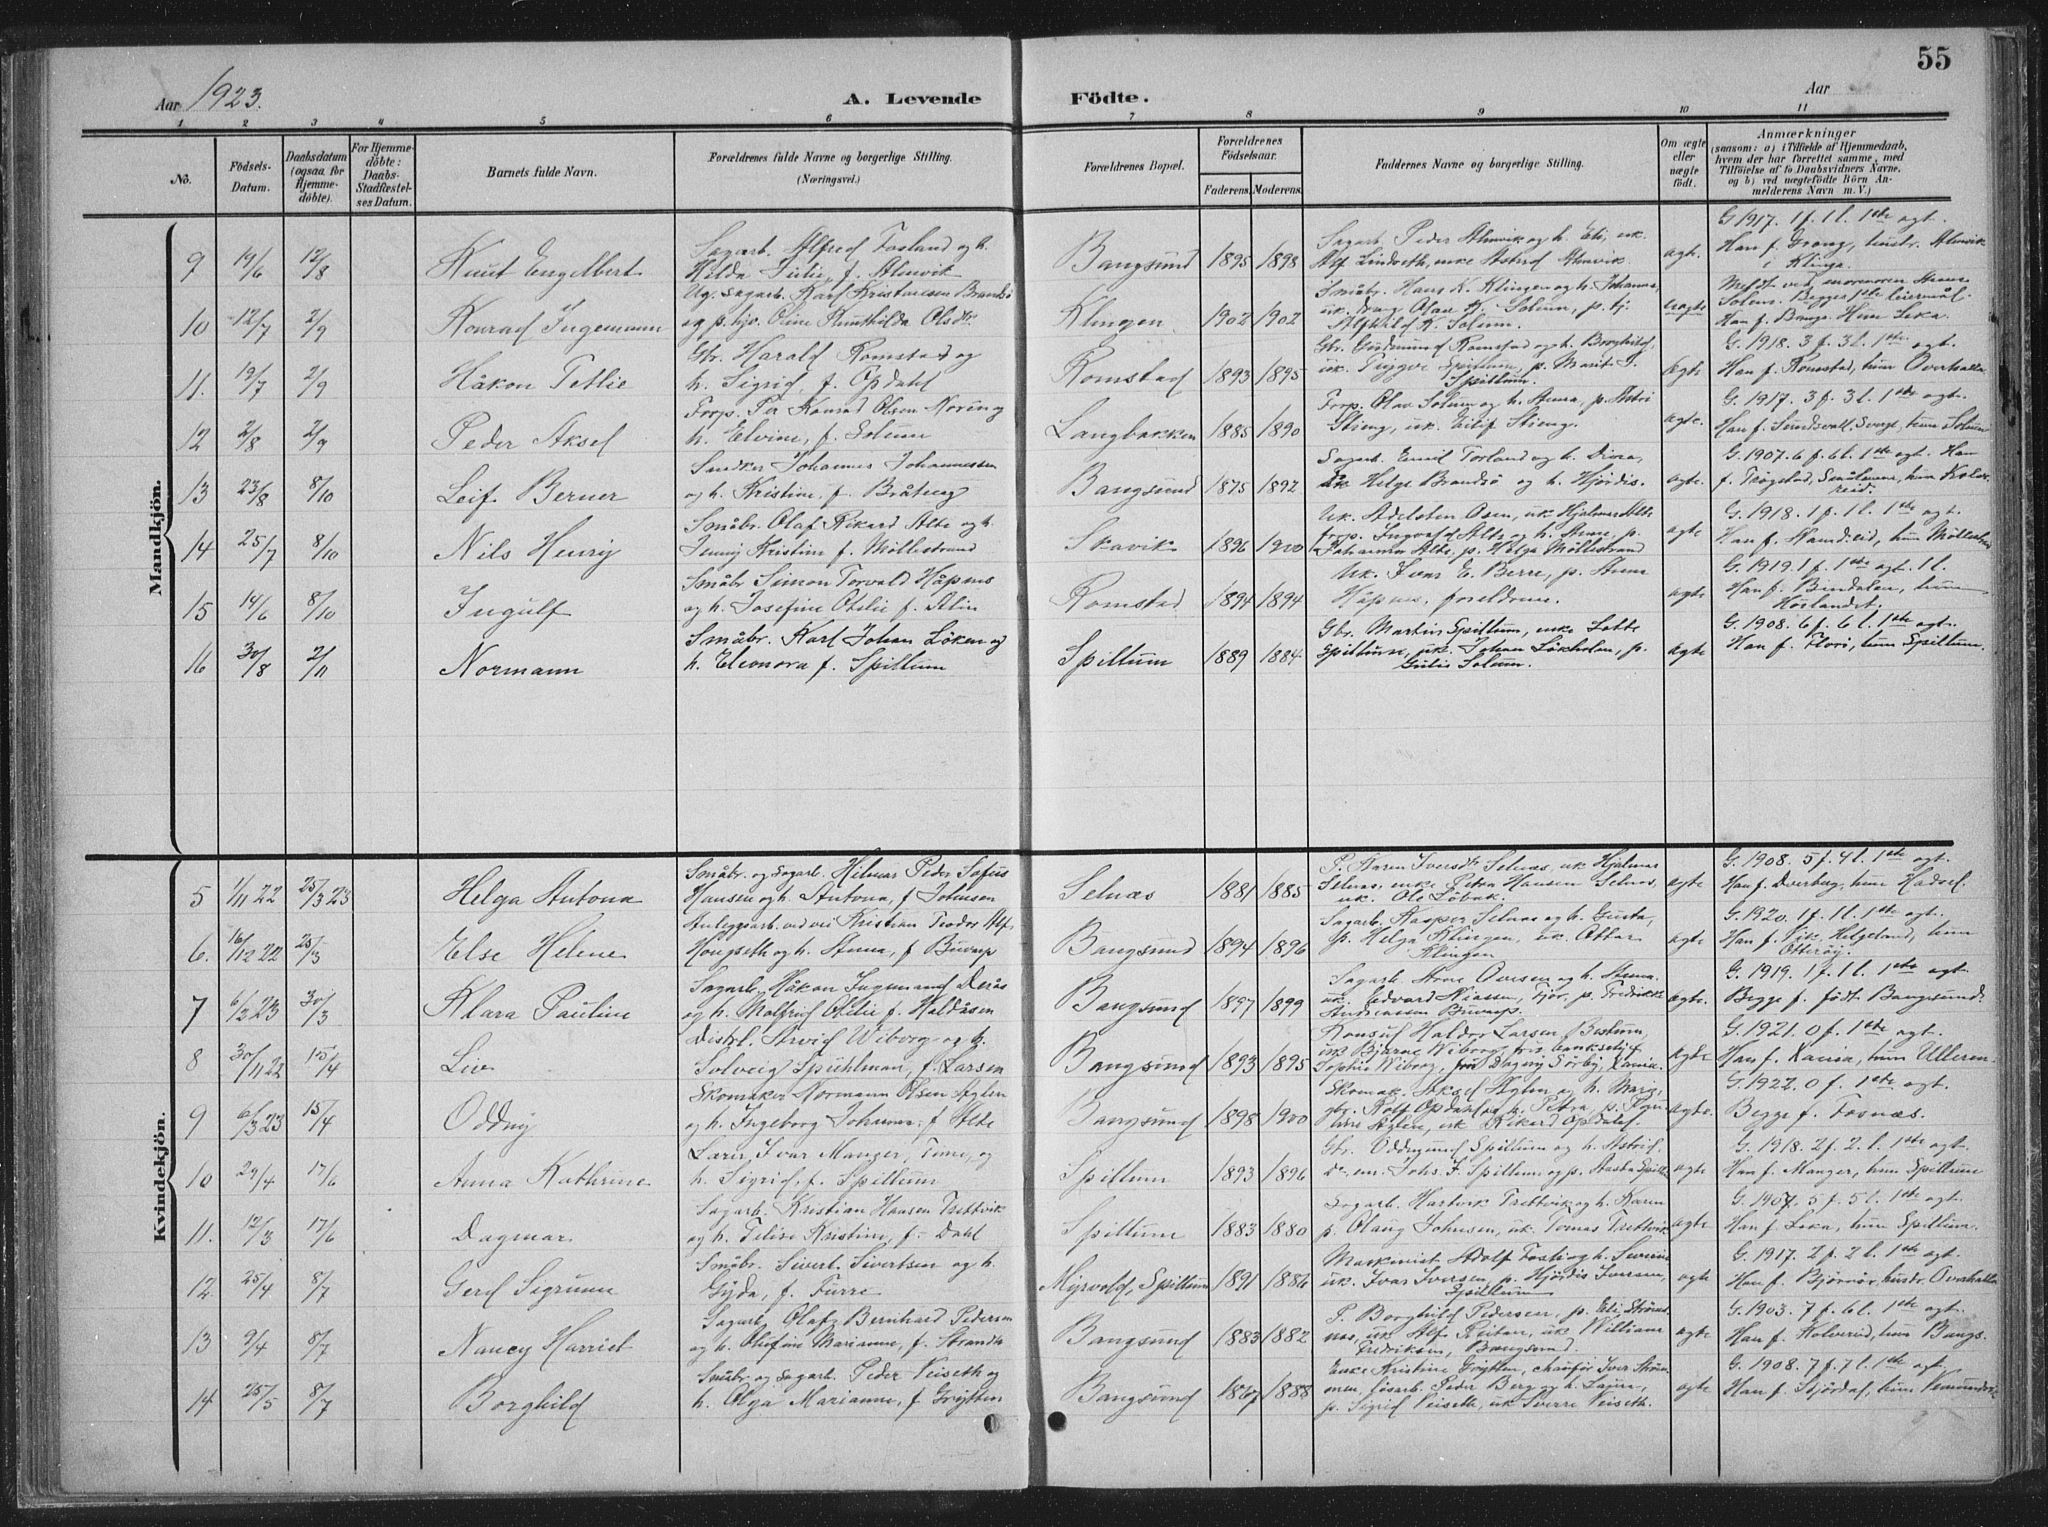 55
Aar 1923. A. Levende Födte. Aar
1 2 3 4 5 6 7 8 9 10 11
No.
Födsels-Datum.
Daabsdatum (ogsaa for Hjemmedöbte).
For Hjemmedöbte: Daabs-Stadfæstelses Datum.
Barnets fulde Navn.
Forældrenes fulde Navne og borgerlige Stilling.
(Næringsvei.)
Forældrenes Bopæl.
Forældrenes Födselsaar.
Faderens. Moderens.
Faddernes Navne og borgerlige Stilling.
Om ægte eller uægte födt.
Anmærkninger
(saasom: a) i Tilfælde af Hjemmedaab, hvem der har forrettet samme, med Tilföielse af to Daabsvidners Navne, og b) ved uægtefödte Börn Anmelderens Navn m. V.)
Mandkjön.
9 19/6 12/8 Knut Engelbert
Sagarb. Alfred Fosland og h.
Hilda Julie, f. Almvik
Bangsund 1895 1898
Sagarb. Peder Almvik og h. Eli, uk.
Alf Lindseth, enke Astrid Almvik.
ægte.
G. 1917. 1 f. 1 l. 1ste ægt.
Han f. Grong, hustr. Almvik
i Klinga.
10 12/7 2/9 Konrad Ingemann
Ug. sagarb. Karl Kristiansen Brandsö
og p. hjv. Oline Olsdtr.
Klingen 1902 1902
Småbr. Hans K. Klingen og h. Johanna,
uk. Olav K. Solum, p. hj.
Alfhild K. Solum.
uægte
Begges 1ste leiermål.
11. 19/7 2/9 Håkon Tetlie
Gbr. Harald Romstad og
h. Sigrid, f. Opdahl
Romstad 1893 1895
Gbr. Gudmund Romstad og h. Borghild,
uk. Trygve Spillum, p. Marit J.
Spillum.
Ægte
G. 1918. 3 f. 3 l. 1ste ægt.
Han f. Romstad, hun Overhalla
12 2/8 2/9 Peder Aksel
Forp. Per Konrad Olsen Noring
h. Elvine, f. Solum
Langbakken 1885 1890
Forp. Olav Solum og h. Anna, p. Astri
Stieng, uk. Eilif Stieng.
ægte.
G. 1917. 3 f. 3 l. 1ste ægt.
Han f. Sundsvall, Sverge, hun Solum
13 23/8 8/10 Leif Berner
Snedker Johannes Johannessen
og h. Kristine, f. Bråteng
Bangsund 1875 1892
Sagarb. Emil Torland og h. Dina,
uk. Helge Brandsö og h. Hjördis.
ægte.
G. 1907. 6 f. 6 l. 1ste ægt. Han
f. Trögstad, Smålenene, hun Kolvereid.
14 25/7 8/10 Nils Henry
Småbr. Olaf Rikard Alte og h.
Jenny Kristine f. Möllestrand
Skavik 1896 1900
Uk. Adelsten Osen, uk. Hjalmar Alte
forp. Ingvald Alte og h. Anne, p.
Johanna Alte, p. Helga Möllestrand
ægte
G. 1918. 1 f. 1 l. 1ste ægt.
15 14/6 8/10 Ingulf
Småbr. Simon Torvald Håpnes
og h. Josefine Otilie f. Alin
Romstad 1894 1894
Uk. Ivar E. Berre, p. Anna
Håpnes, foreldrene.
ægte
G. 1919. 1 f. 1ste ægt. 1 l.
Han f. Bindalen, hun
Horlandet.
16 30/8 2/11 Normann
Småbr. Karl Johan Löken og
h. Eleonora f. Spillum
Spillum 1889 1884
Gbr. Martin Spillum, enke Lotte
Spillum, uk. Johan Lökholm, p.
Gulie Solum.
ægte
G. 1908. 6 f. 6 l. 1ste ægt.
Han f. Florö, hun Spillum.
Kvindekjön.
5 1/11 22 25/3 23 Helga Antona
Småbr. og sagarb. Hilmar Peder Sofus
Hansen og h. Antona, f. Johnsen
Selnæs 1881 1885
P. Karen Iversdtr. Selnæs, uk. Hjalmar
Selnæs, enke Petra Hansen Selnæs,
uk. Ole Löbak.
ægte
G. 1908. 5 f. 4 l. 1ste ægt.
Han f. Dverberg, hun Hadsel.
6. 16/12 22 25/3 Else Helene
Anleggsarb. ved vei Kristian Teodor Alf.
Hougseth og h. Anna, f. Buvarp
Bangsund 1894 1896
Sagarb. Kasper Selnæs og h. Gusta,
p. Helga Klingen, uk. Ottar
Klingen
ægte
G. 1920. 1 f. 1 l. 1ste ægt.
Han f. Vik, Helgeland, hun
Otteröy.
7 6/2 23 30/3 Klara Pauline
Sagarb. Håkon Ingemund Derås
og h. Malfrid Otilie f. Haldåsen
Bangsund 1897 1899
Sagarb. Arne Ovesen og h. Anna.
uk. Edvard Kiasen, Fjor, p. Fredrikke
Andreassen Buvarp.
ægte.
G. 1919. 1 f. 1 l. 1ste ægt.
Begge f. födt Bangsund.
8 30/11 22 15/4 Liv
Distrl. Arvid Wiborg og h.
Solveig Spühlman, f. Larsen
Bangsund 1893 1895
Konsul Haldor Larsen Bestum,
uk. Bjarne Wiborg, frk. banksetif
Sophie Wiborg, fru Dagny Sörby, Xania.
ægte
G. 1921. 0 f. 1ste ægt.
Han f. Xania, hun Ulleren
9 6/3 23 15/4 Oddny
Skomaker Normann Olsen Aglen
og h. Ingeborg Johanna f. Alte
Bangsund 1898 1900
Skomak. Aksel Aglen og h. Marie,
gbr. Rolf Opdahl og h. Petra, p.
Aglen, uk. Rikard Opdahl.
ægte.
G. 1922. 0 f. 1ste ægt.
Begge f. Fosnæs.
10 29/4 17/6 Anna Kathrine
Lærer Ivar Manger, Time, og
h. Sigrid, f. Spillum
Spillum 1893 1896
Gbr. Oddmund Spillum og h. Astrid,
do em. Johs. F. Spillum og p. Aasta Spillum
ægte
G. 1918. 2 f. 2 l. 1ste ægt.
Han f. Manger, hun Spillum
11. 12/3 17/6 Dagmar.
Sagarb. Kristian Hansen Trettvik
og h. Felise Kristine, f. Dahl
Spillum 1883 1880
Sagarb. Hartvik Trettvik og h. Karen
p. Olaug Johnsen, uk. Tomas Trettvik
ægte
G. 1907. 5 f. 5 l. 1ste ægt.
Han f. Leka, hun Spillum.
12 25/4 8/7 Gerd Sigrunn
Småbr. Sivert Sivertsen og h.
Gyda, f. Furre
Myrvold, Spillum 1891 1886
Maskinist Adolf Fosli og h. Severine
uk. Ivar Iversen, p. Hjördis Iversen,
Spillum
ægte
G. 1917. 2 f. 2 l. 1ste ægt.
Han f. Björnör, hustr. Overhalla
13 9/4 8/7 Nancy Harriet
Sagarb. Olaf Bernhard Pedersen
og h. Olufine Marianne, f. Strandh
Bangsund 1883 1882
P. Borghild Pedersen, p. Eli Strömnes,
uk. Alf Reitan, uk. William
Fredriksen, Bangsund.
ægte
G. 1903. 7 f. 6 l. 1ste ægt.
Han f. Kolvereid, hun Bangs.
14 25/5 8/7 Borghild
Småbr. og sagarb. Peder Veiseth og
h. Olga Marianne, f. Grytten
Bangsund 1867 1888
Enke Kristine Grytten, chaufför Iver Strömmen,
fösarb. Peder Berg og h. Laura,
p. Sigrid Veiseth, uk. Sverre Veiseth.
ægte
G. 1908. 7 f. 7 l. 1ste ægt.
Han f. Stjördal, hun Vemundvik